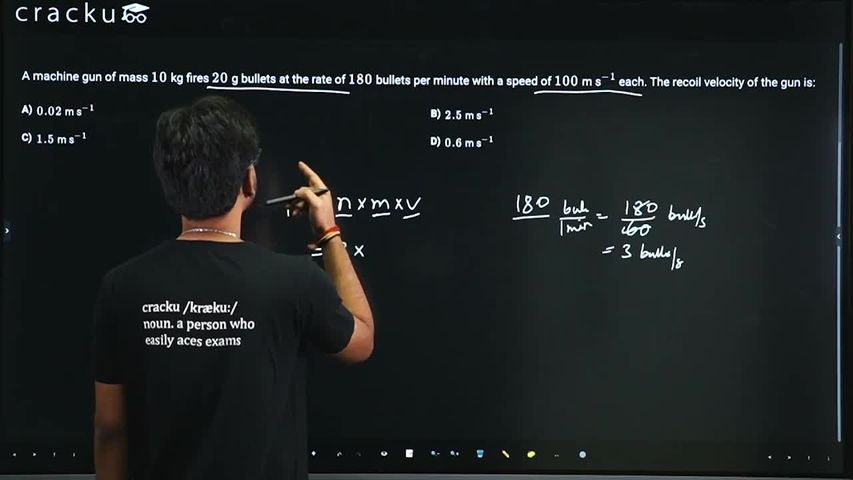 cracku
A machine gun of mass 10 kg fires 20 g bullets at the rate of 180 bullets per minute with a speed of 100 m s⁻¹ each. The recoil velocity of the gun is:
A) 0.02 m s⁻¹
B) 2.5 m s⁻¹
C) 1.5 m s⁻¹
D) 0.6 m s⁻¹
n × m × v
= ×
180 = 180 / 60
1 min
= 3
cracku /kræku:/
noun. a person who
easily aces exams